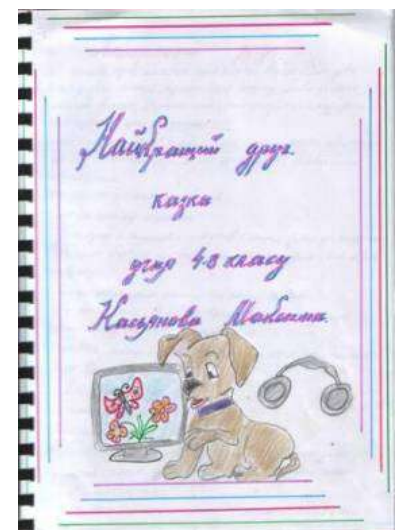 Найкращий друг.
казка
учня 4-В класу
Касьянова Максима.